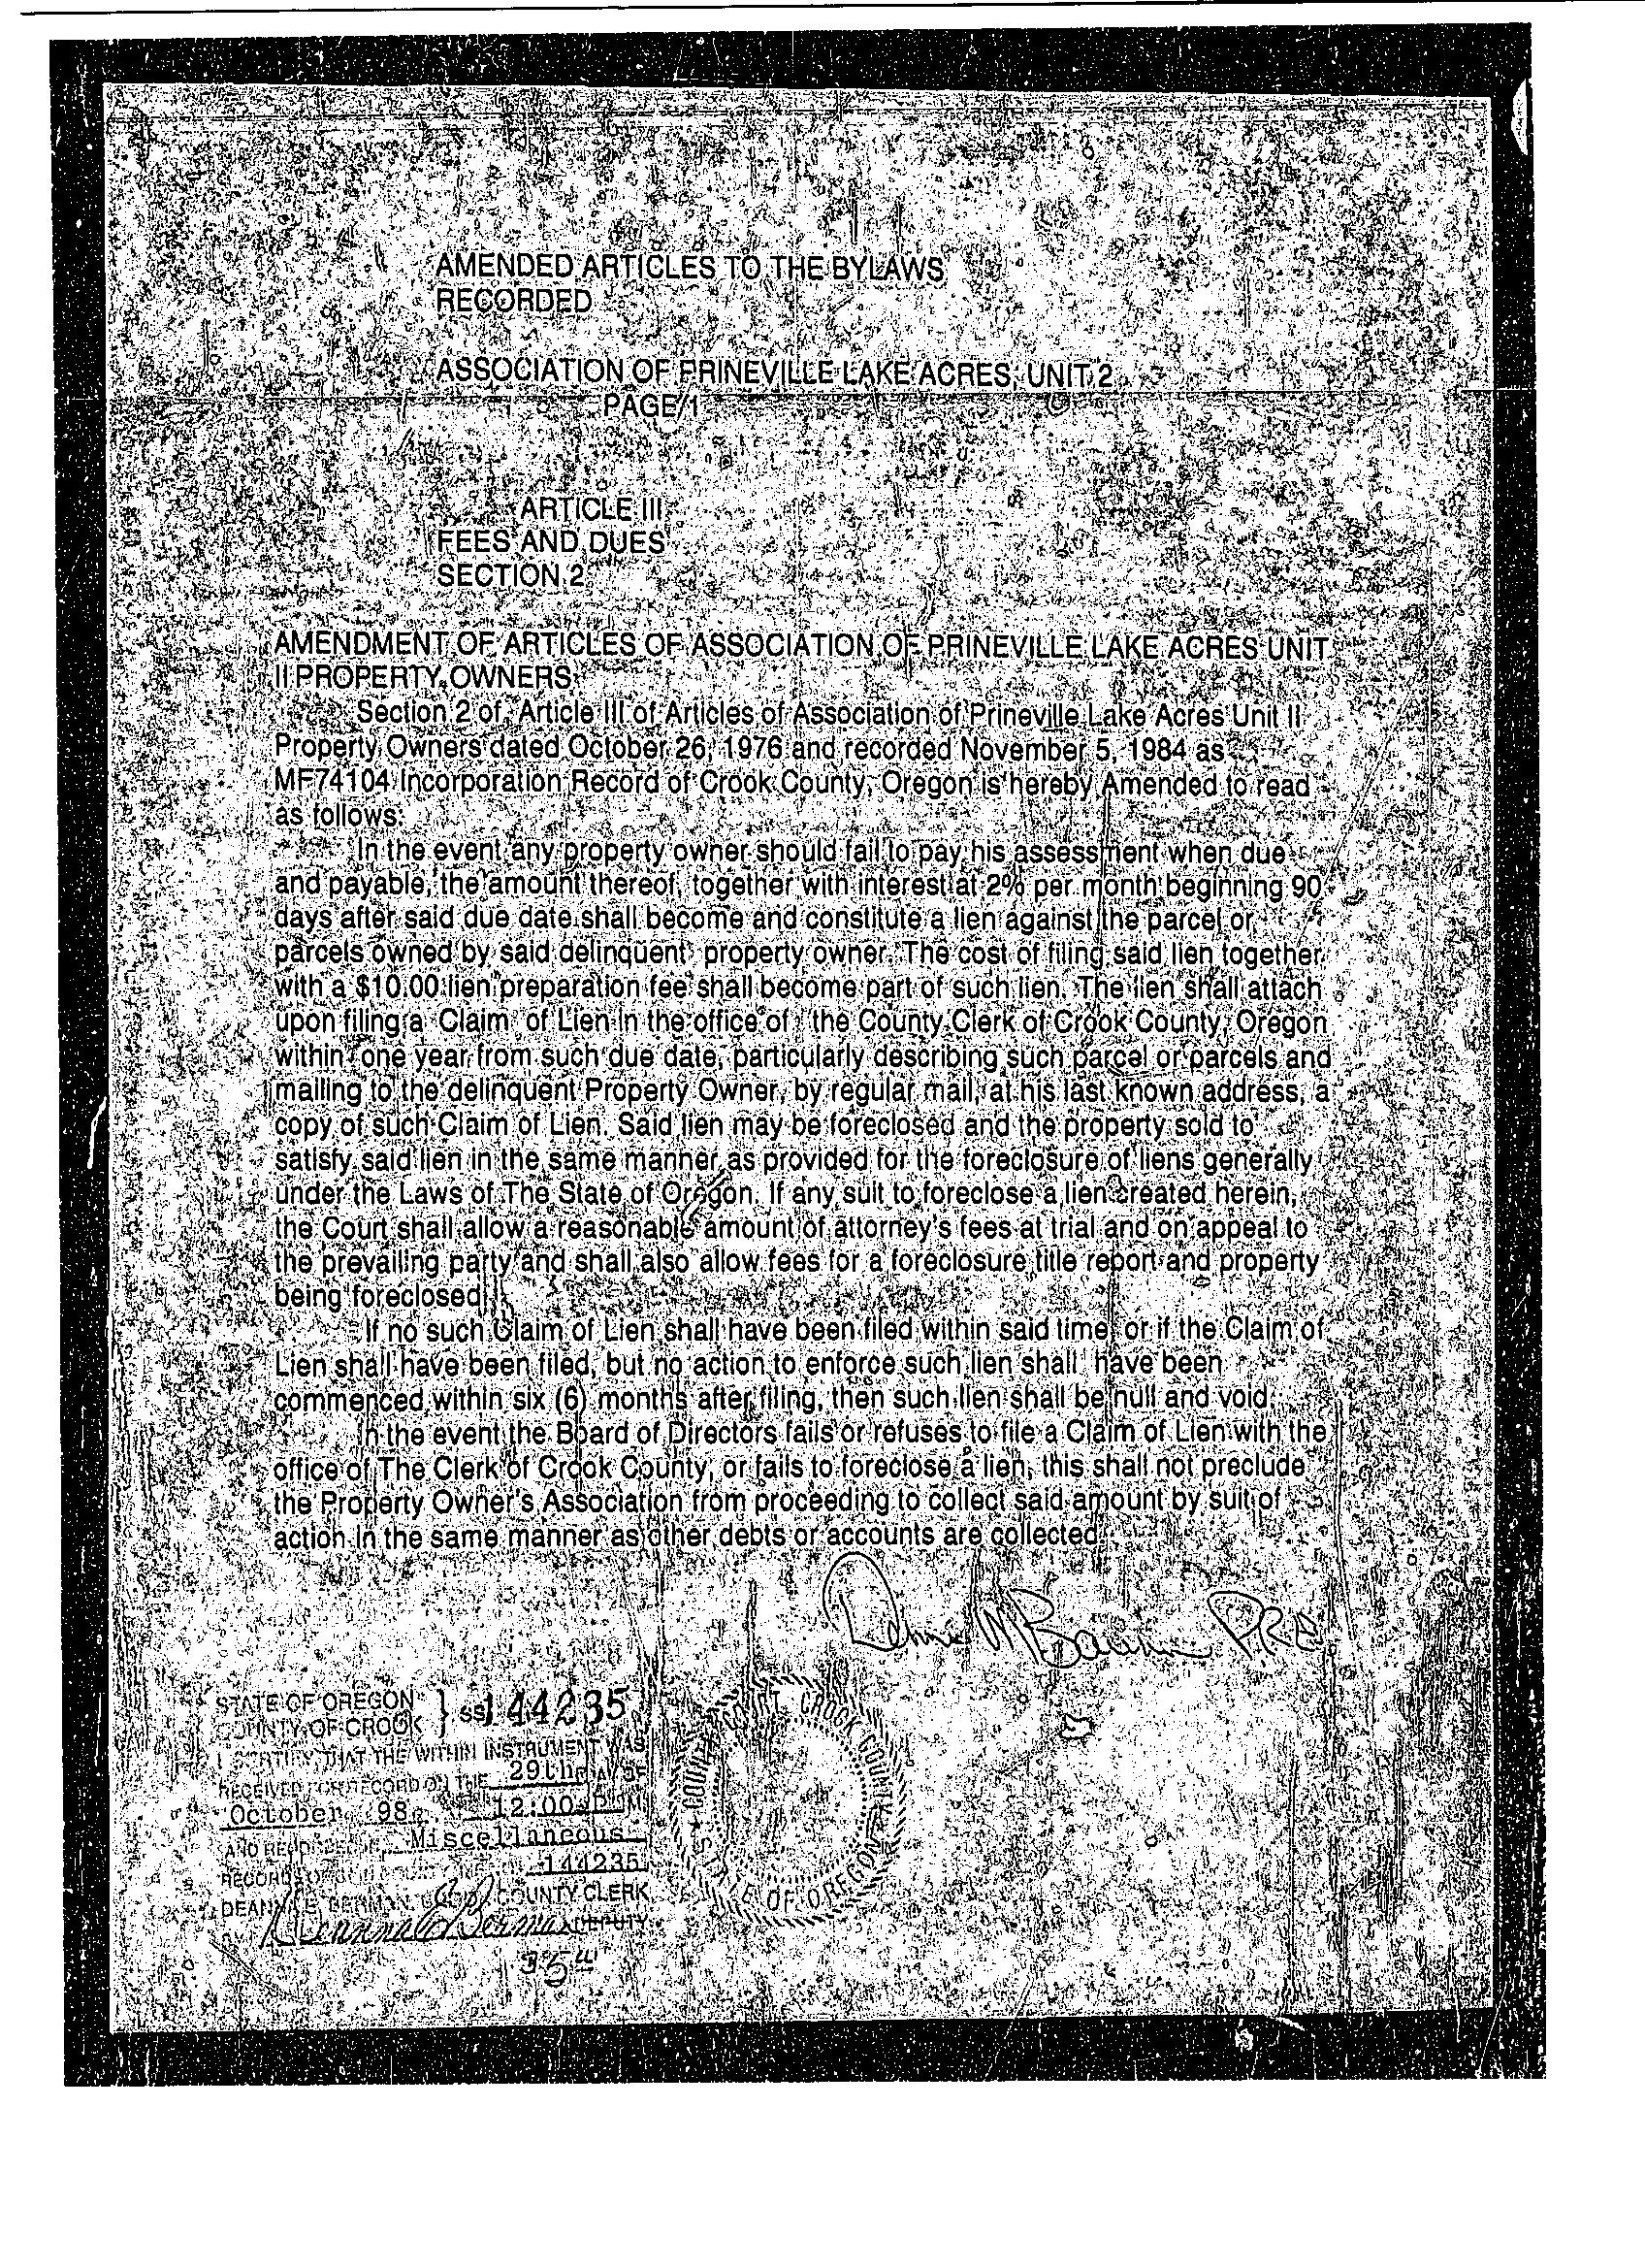 AMENDED ARTICLES TO THE BYLAWS
RECORDED
ASSOCIATION OF PRINEVILLE LAKE ACRES, UNIT 2
PAGE 1
ARTICLE III
FEES AND DUES
SECTION 2
AMENDMENT OF ARTICLES OF ASSOCIATION OF PRINEVILLE LAKE ACRES UNIT
II PROPERTY OWNERS
Section 2 of Article III of Articles of Association of Prineville Lake Acres Unit II
Property Owners dated October 26, 1976 and recorded November 5, 1984 as
MF74104 Incorporation Record of Crook County, Oregon is hereby Amended to read
as follows:
In the event any property owner should fail to pay his assessment when due
and payable, the amount thereof, together with interest at 2% per month beginning 90
days after said due date shall become and constitute a lien against the parcel or
parcels owned by said delinquent property owner. The cost of filing said lien together
with a $10.00 lien preparation fee shall become part of such lien. The lien shall attach
upon filing a Claim of Lien in the office of the County Clerk of Crook County, Oregon
within one year from such due date, particularly describing such parcel or parcels and
mailing to the delinquent Property Owner, by regular mail, at his last known address, a
copy of such Claim of Lien. Said lien may be foreclosed and the property sold to
satisfy said lien in the same manner as provided for the foreclosure of liens generally
under the Laws of The State of Oregon. If any suit to foreclose a lien created herein,
the Court shall allow a reasonable amount of attorney's fees at trial and on appeal to
the prevailing party and shall also allow fees for a foreclosure title report and property
being foreclosed.
If no such Claim of Lien shall have been filed within said time, or if the Claim of
Lien shall have been filed, but no action to enforce such lien shall have been
commenced within six (6) months after filing, then such lien shall be null and void.
In the event the Board of Directors fails or refuses to file a Claim of Lien with the
office of The Clerk of Crook County, or fails to foreclose a lien, this shall not preclude
the Property Owner's Association from proceeding to collect said amount by suit of
action in the same manner as other debts or accounts are collected.
PRE
STATE OF OREGON } SS 144235
COUNTY OF CROOK
I CERTIFY THAT THE WITHIN INSTRUMENT WAS
RECEIVED FOR RECORD ON THE 29th DAY OF
October 98 12:00 P M
AND RECORDED IN Miscellaneous
RECORDS OF SAID 144235
DEANNA E. BERMAN, COUNTY CLERK
DEPUTY
COUNTY COURT CROOK COUNTY
STATE OF OREGON